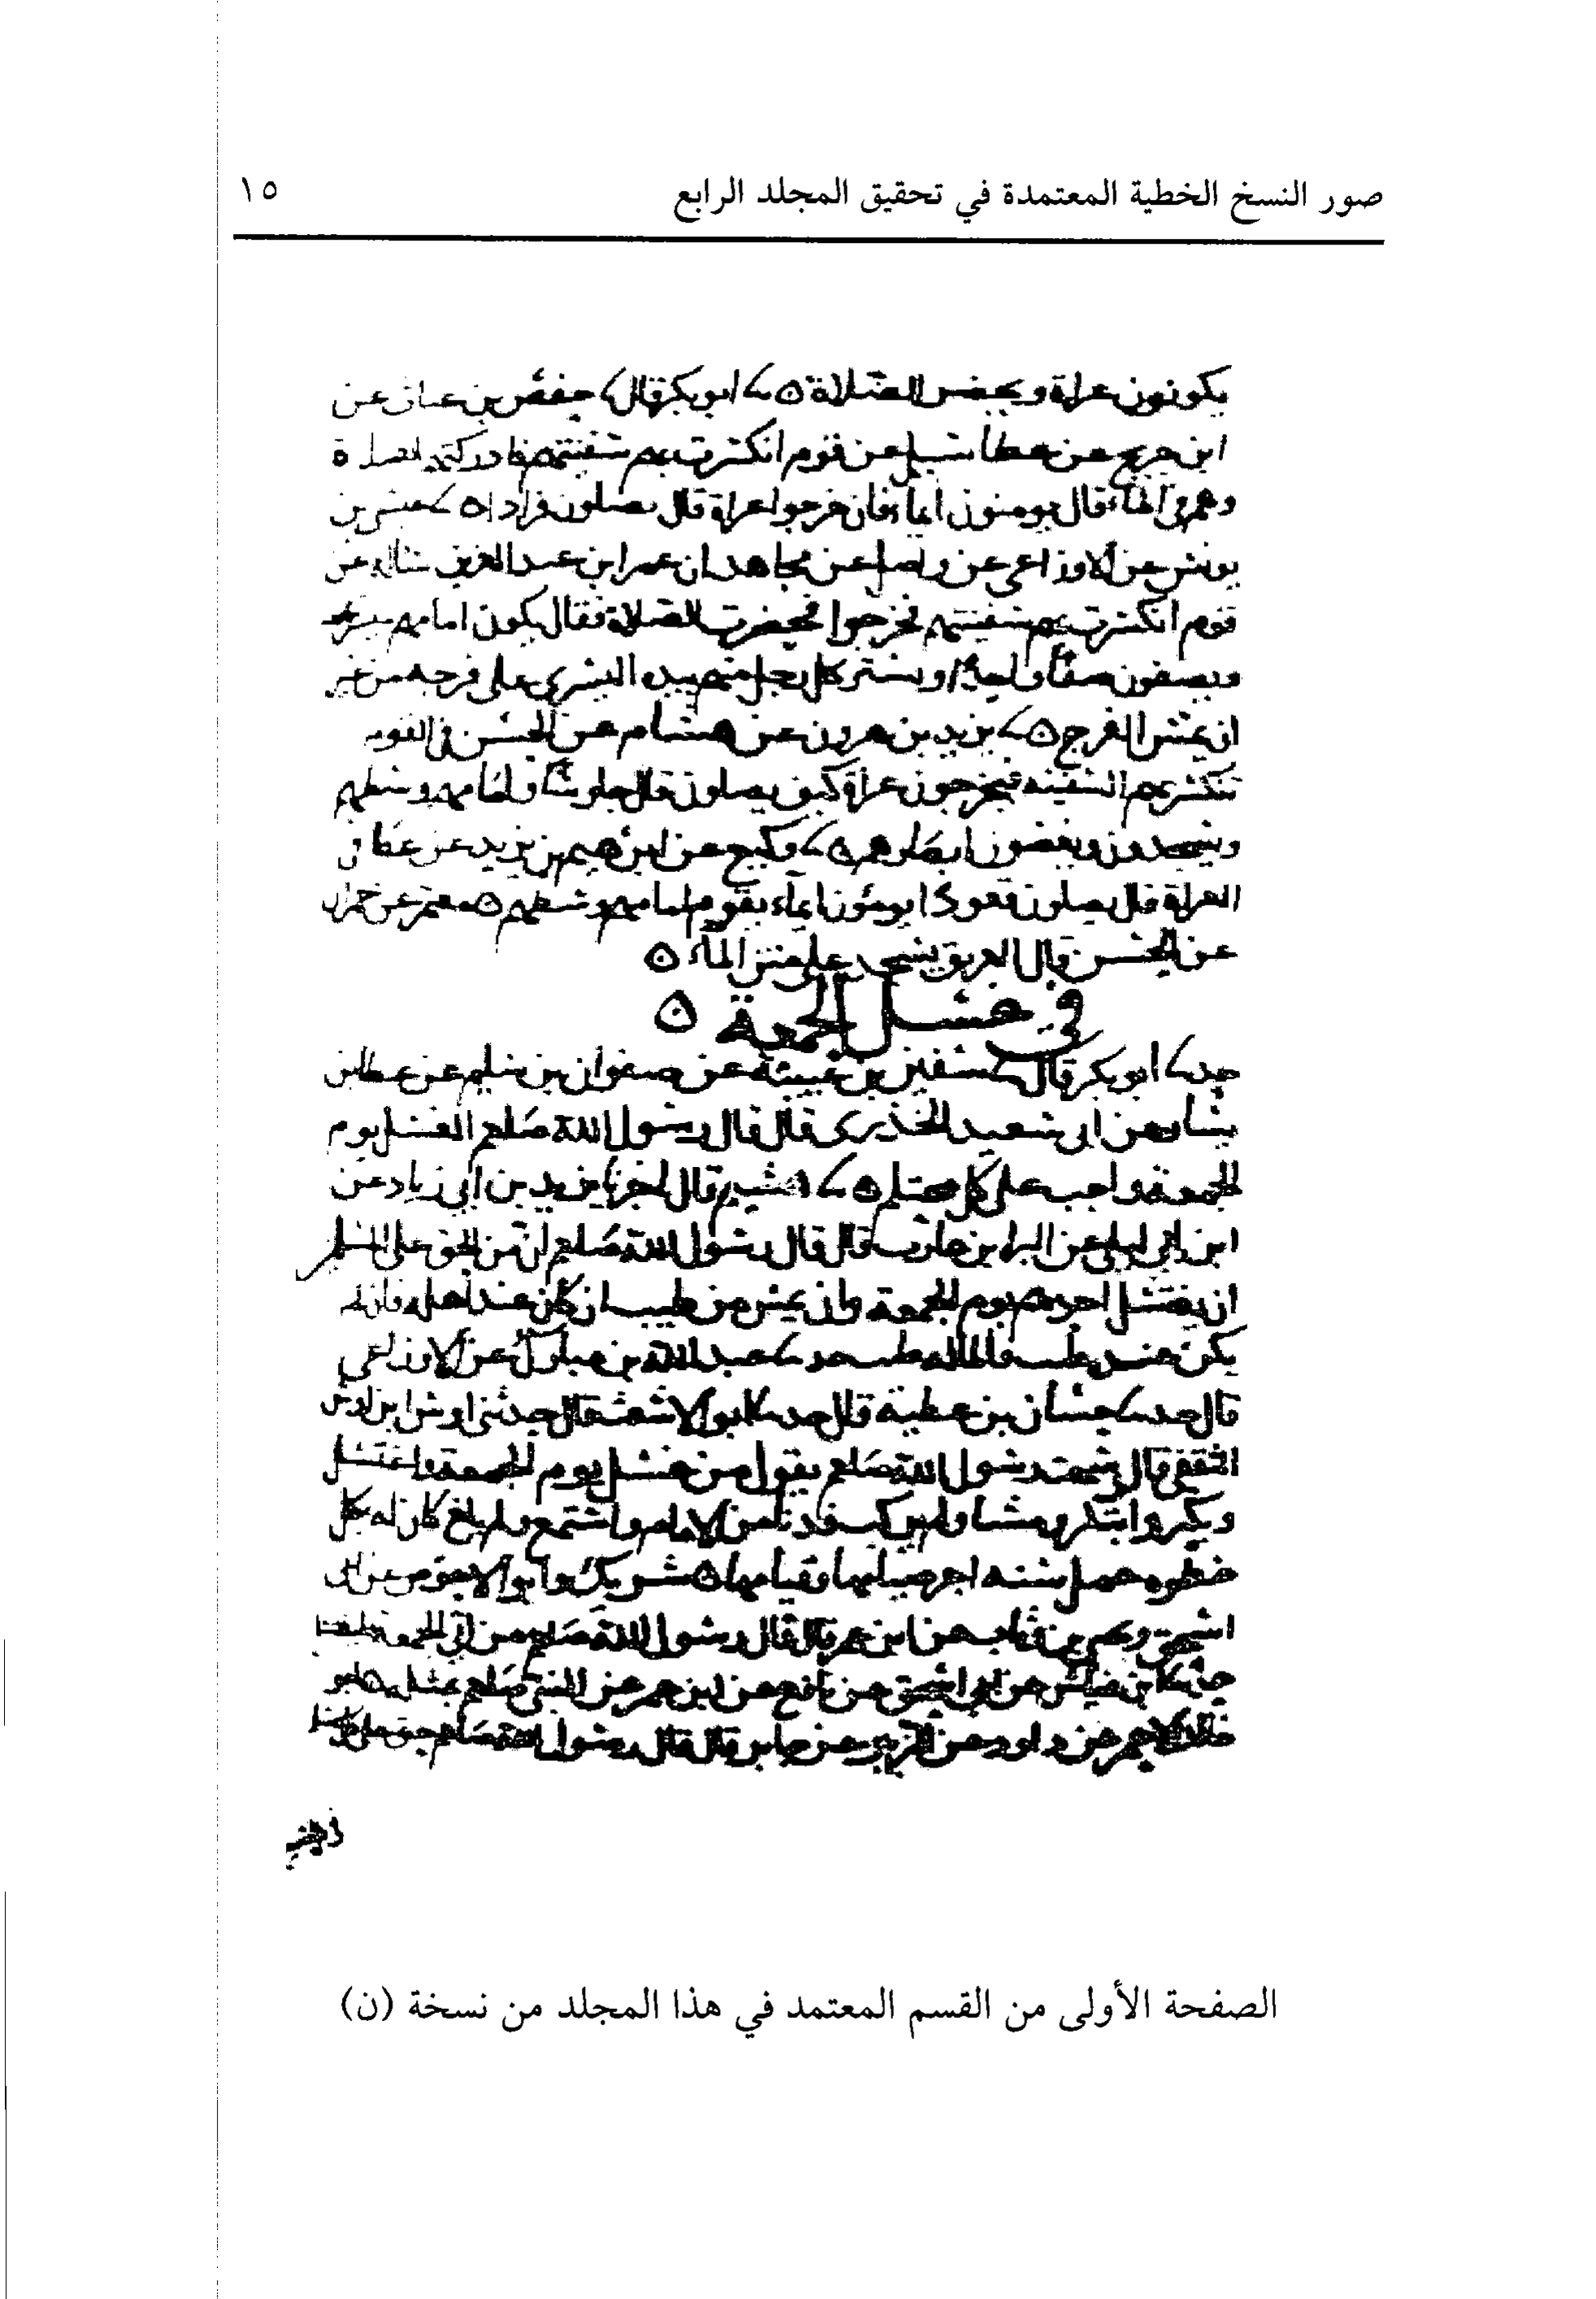 صور النسخ الخطية المعتمدة في تحقيق المجلد الرابع
١٥
يكونون عراة ويحضر الصلاة ابو بكر قال حفص بن عن
ابن جريج عن عطا سيل عن قوم انكسرت بهم سفينتهم فادركتهم الصلاة
وهم في الماء قال يومنون ايماء فان خرجوا عراة قال يصلون فرادا عيسى بن
يونس عن الاوزاعي عن واصل عن مجاهد ان عمر ابن عبد العزيز عن
قوم انكسرت بهم سفينتهم فخرجوا فحضرت الصلاة فقال يكون امامهم
ويصفون صفا واحدا ويستر كل رجل منهم بيده اليسرى على فرجه من غير
ان يمس الفرج يزيد بن هرون عن هشام عن الحسن في القوم
تنكسر بهم السفينه فيخرجون عراة كيف يصلون قال جلوسا وامامهم وسطهم
ويسجدون ويغضون ابصارهم وكيع عن ابرهيم بن يزيد عن عطا في
العراة قال يصلون قعودا يومئون ايماء يقوم امامهم وسطهم معتمر عن
عن الحسن قال الغريق يسجد على متن الماء
في غسل الجمعة
حدثنا ابو بكر قال سفين بن عيينة عن صفوان بن سليم عن عطا بن
يسار عن ابي سعيد الخدري قال قال رسول الله صلعم الغسل يوم
الجمعة واجب على كل محتلم هشيم قال اخبرنا يزيد بن ابي زياد عن
ابن ابي ليلى عن البراء بن عازب قال قال رسول الله صلعم ان من الحق على المسلم
ان يغتسل احدهم يوم الجمعة وان يمس من طيب ان كان عند اهله فان لم
يكن عندهم طيب فالماء له طيب حدثنا عبد الله بن مبارك عن الاوزاعي
قال حدثنا حسان بن عطية قال حدثنا ابو الاشعث قال حدثني اوس ابن اوس
الثقفي قال سمعت رسول الله صلعم يقول من غسل يوم الجمعة واغتسل
وبكر وابتكر ومشا ولم يركب فدنا من الامام واستمع ولم يلغ كان له بكل
خطوه عمل سنه اجر صيامها وقيامها شريك وابو الاحوص عن ابي
اسحق ويحيى بن وثاب عن ابن عمر قال قال رسول الله صلعم من اتى الجمعة
حدثنا عن ابي اسحق عن نافع عن ابن عمر عن النبي صلعم ابو
خالد الاحمر عن داود عن ابي الزبير عن جابر قال قال رسول الله صلعم حق على كل
الصفحة الأولى من القسم المعتمد في هذا المجلد من نسخة (ن)